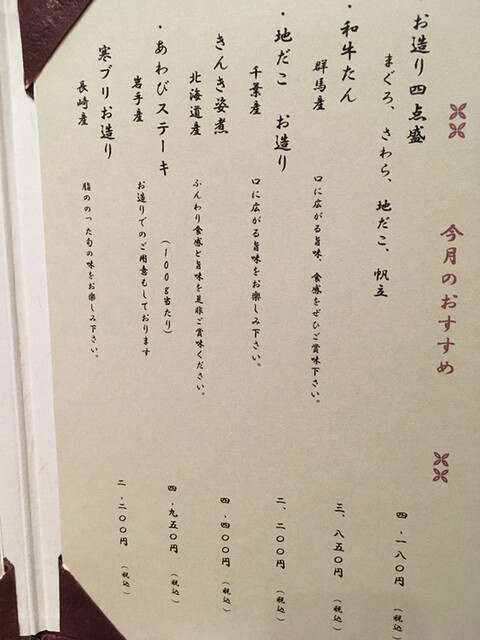 今月のおすすめ
お造り四点盛
まぐろ、さわら、地だこ、帆立
四、一八〇円（税込）
・和牛たん
群馬産
口に広がる旨味、食感をぜひご賞味下さい。
三、八五〇円（税込）
・地だこ　お造り
千葉産
口に広がる旨味をお楽しみ下さい。
二、二〇〇円（税込）
きんき姿煮
北海道産
ふんわり食感と旨味を是非ご賞味ください。
四、四〇〇円（税込）
・あわびステーキ　（100g当たり）
岩手産
お造りでのご用意もしております
四、九五〇円（税込）
寒ブリお造り
長崎産
脂ののった旬の味をお楽しみ下さい。
二、二〇〇円（税込）